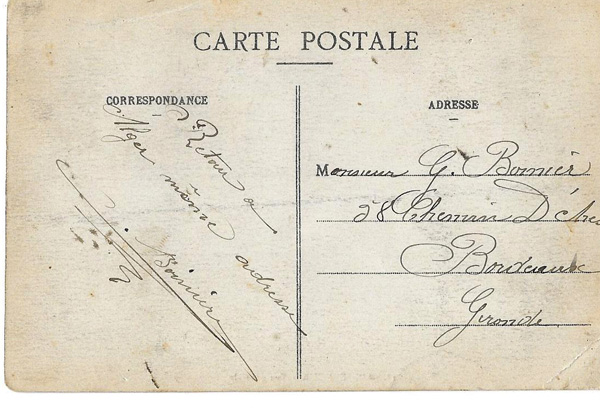 CARTE POSTALE
CORRESPONDANCE
Retour a
Alger même
adresse
Bonnièr
ADRESSE
Monsieur G. Bonnièr
28 Chemin D'
Bordeaux
Gironde